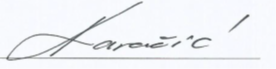 Karačić